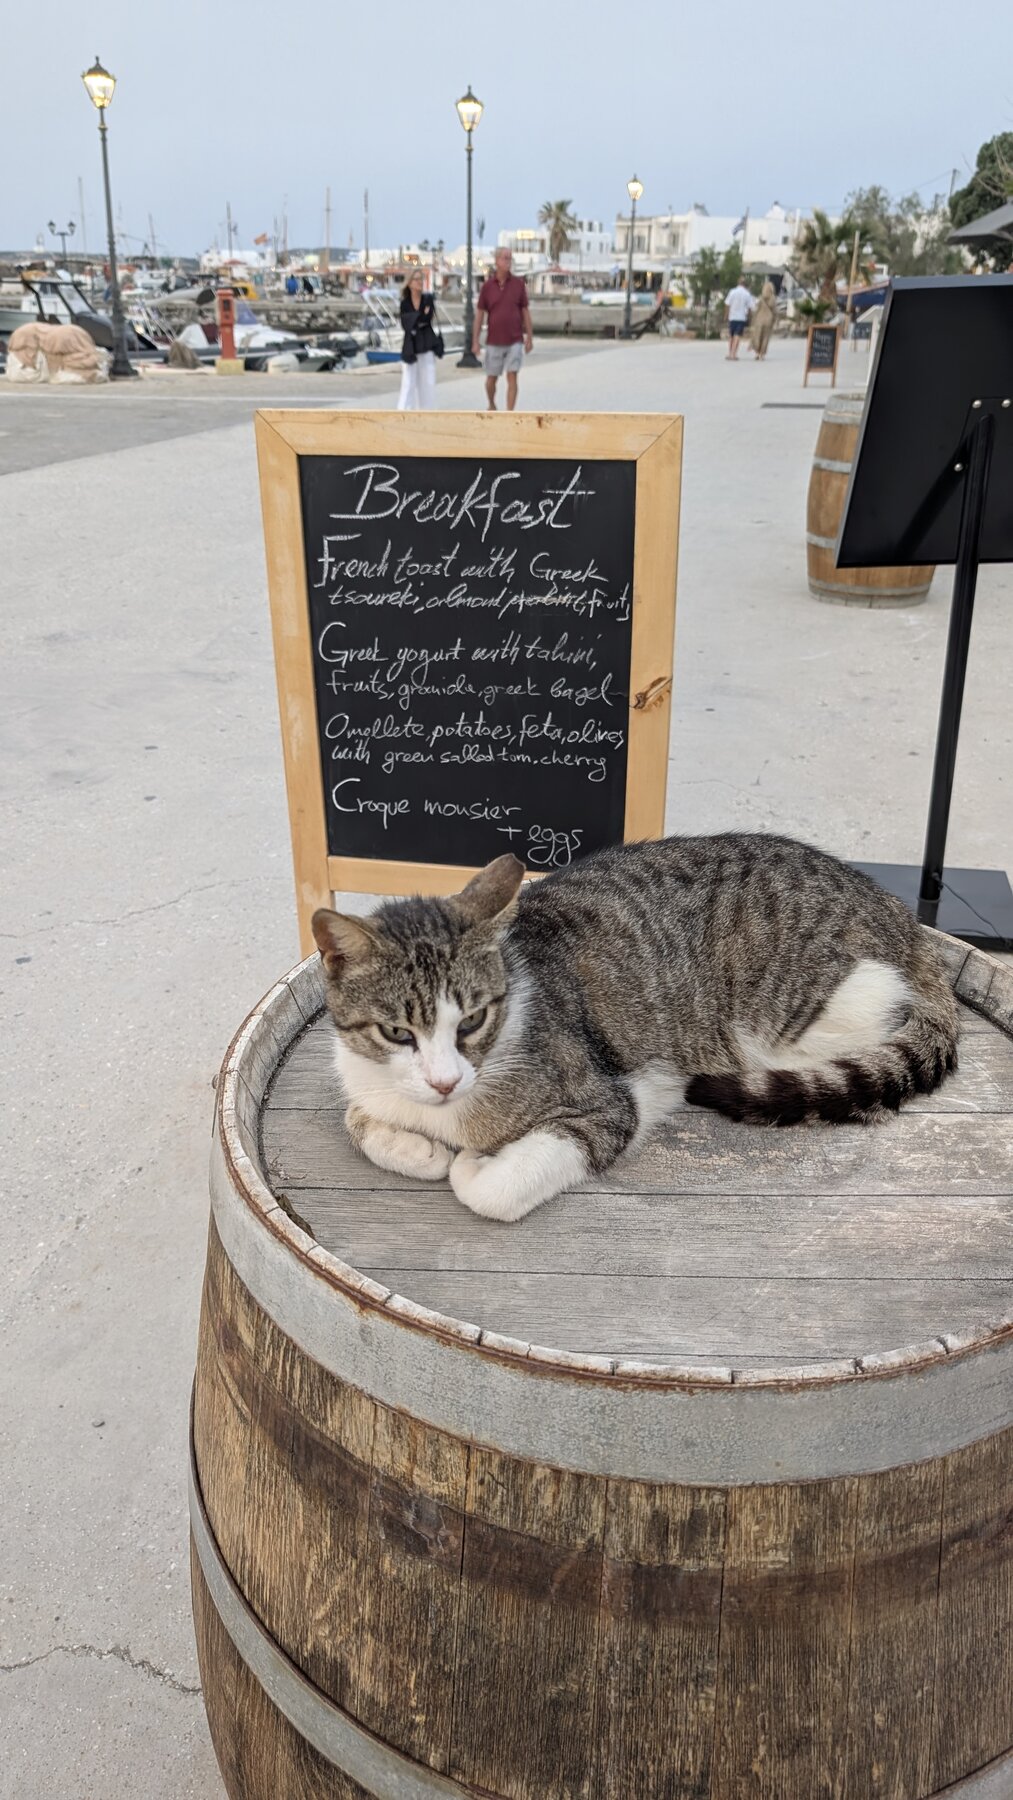 Breakfast
French toast with Greek
tsoureki, almond praline, fruits
Greek yogurt with tahini,
fruits, granola, greek bagel
Omellete, potatoes, feta, olives
with green sallad tom. cherry
Croque mousier
+ eggs